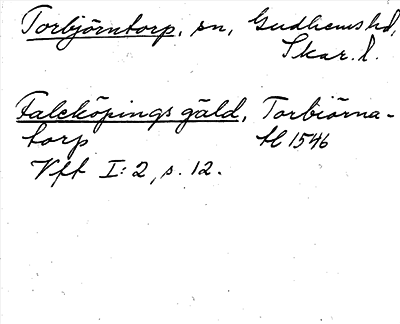 Torbjörntorp, sn, Gudhems hd,
Skar. l.
Faleköpings gäld, Torbiörna-
torp tl 1546
Vft I:2, s. 12.